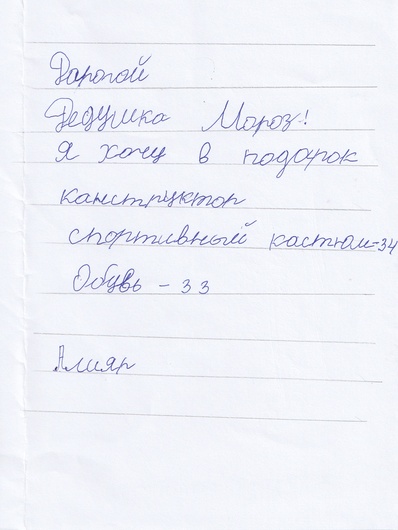 Дарогой
Дедушка Мороз!
Я хочу в подарок
канструктор
спортивный кастюм-34
Обувь - 33
Алияр